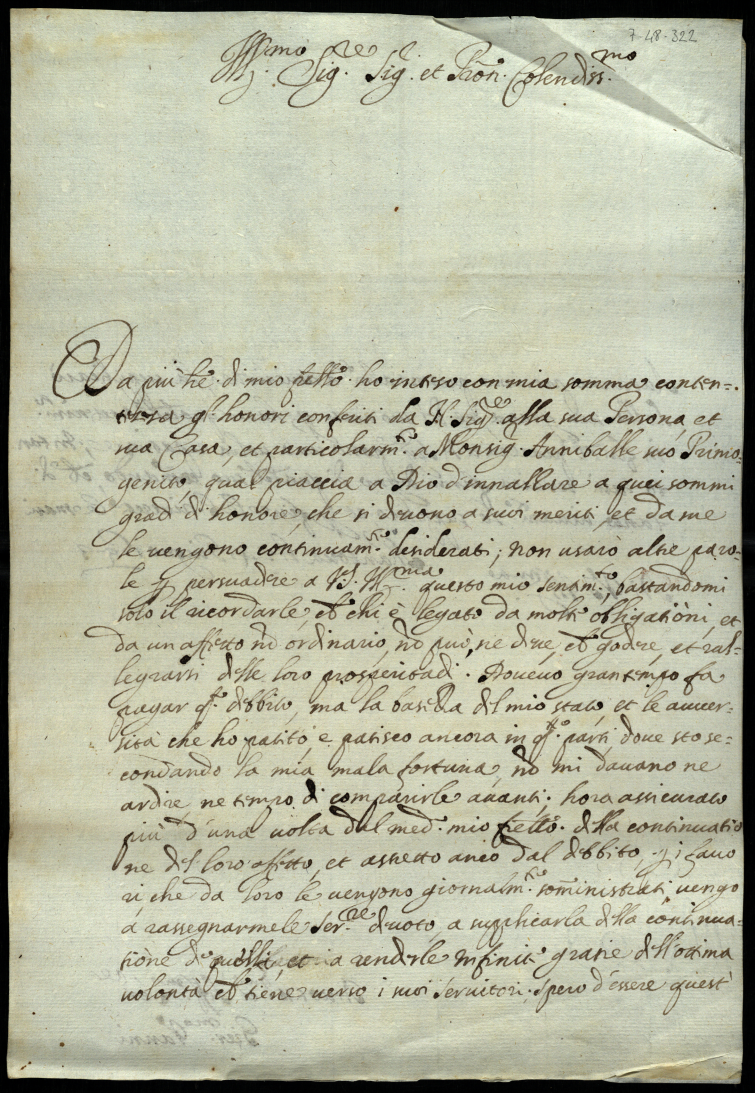 7-48-322
Ill.mo Sig.re Sig.r et Pron. Colendiss.mo
Da più l're di mio fr'ello ho inteso con mia somma conten=
tezza gl'honori conferiti da N. Sig.re alla sua Persona, et
sua Casa, et particolarm.te a Monsig.r Anniballe suo Primo
genito, qual piaccia a Dio d'innallzare a quei sommi
gradi di honore, che si devono a suoi meriti, et da me
le vengono continuam.te desiderati; non usarò altre paro-
le p persuadere a V.S. Ill.ma questo mio sentim.to, bastandomi
solo il ricordarle, ch' chi è legato da molte obligationi, et
da un affetto nō ordinario, nō può, ne deve, ch' godere, et ral-
legrarsi delle loro prosperitadi. Dovevo gran tempo fa
pagar q.sto debbito, ma la bassezza del mio stato, et le avver-
sità che ho patito, e patisco ancora in q.ste parti dove sto se=
condando la mia mala fortuna, nō mi davano ne
ardire ne tempo di comparirle avanti; hora assicurato
più d'una volta dal med.mo mio fr'ello della continuatio
ne del loro affetto, et astretto anco dal debbito, p i favo
ri che da loro le vengono giornalm.te somministrati vengo
a rassegnarmele Ser.re devoto, a supplicarla della continua-
tione di quelli, et a renderle infinite gratie dell'ottima
volontà ch' tiene verso i suoi servitori. Spero d'essere quest'